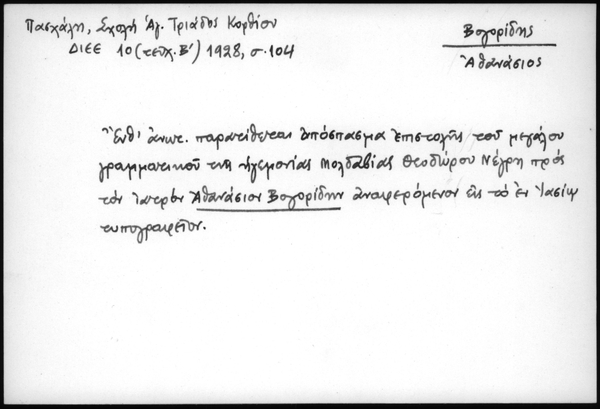 Πασχάλη, Σχολή Ἁγ. Τριάδος Κορθίου
ΔΙΕΕ 10 (τεῦχ. Β') 1928, σ. 104
Βογορίδης
Ἀθανάσιος
Ἔνθ' ἀνωτ. παρατίθεται ἀπόσπασμα ἐπιστολῆς τοῦ μεγάλου
γραμματικοῦ τῆς ἡγεμονίας Μολδαβίας Θεοδώρου Νέγρη πρὸς
τὸν ἰατρὸν Ἀθανάσιον Βογορίδην ἀναφερόμενον εἰς τὸ ἐν Ἰασίῳ
τυπογραφεῖον.